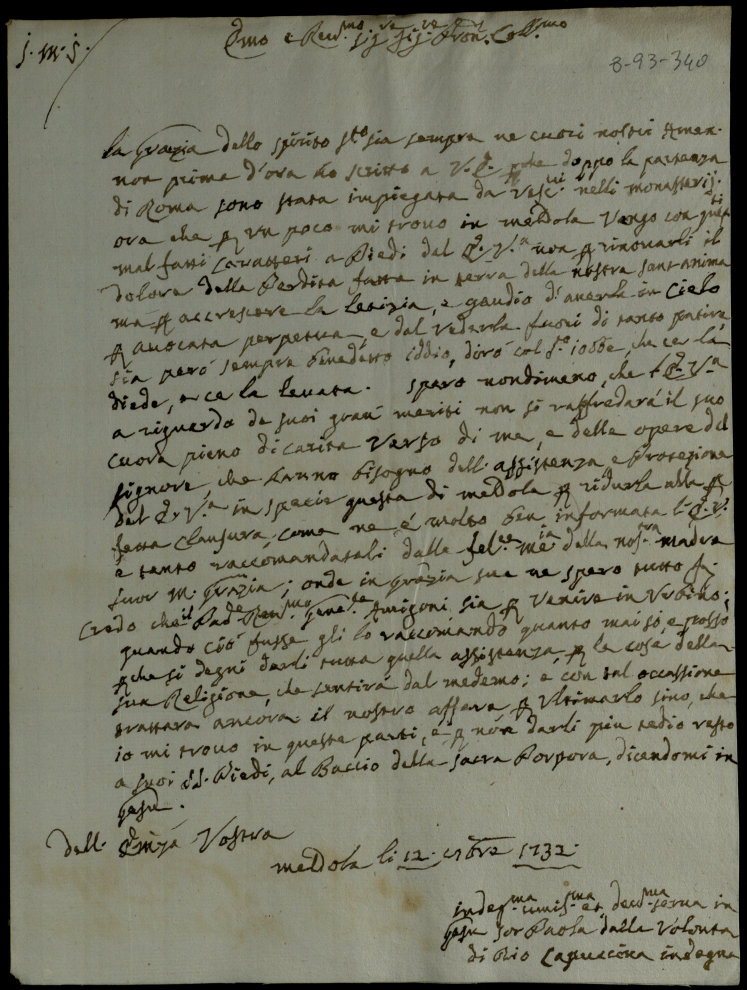 J. M. J.
Emo e Reud.mo Sig.re Sig.re Pron. Coll.mo
8-93-340
la Grazia dello Spirito Sto sia sempre ne cuori nostri Amen.
non prima d'ora ho scritto a V. E. ꝑche doppo la partenza
di Roma sono stata impiegata da Vesc.vi nelli monasterij.
ora che ꝑ un poco mi trovo in meldola Vengo con questi
mal fatti Caratteri a Piedi del E. V.a non ꝑ rinovarli il
dolore della Perdita fatta in terra della nostra sant'anima
ma ꝑ accrescere la letizia, e gaudio d'auerla in Cielo
ꝑ auocata perpetua, e dal vederla fuori di tanto patire,
sia peró sempre benedetto iddio, diró col S.to iobbe, che ce la
diede, e ce la leuata. spero nondimeno, che l'E. V.a
a riguardo de suoi grani meriti non si raffredará il suo
cuore pieno di carita Verso di me, e delle opere del
signore, che hanno bisogno dell'assistenza e Protezione
del E. V.a in specie questa di meldola ꝑ ridurla alla ꝑ
fetta Clausura, come ne é molto ben informata l'E. V.
e tanto raccomandatali dalla fel.ce me.ia della nostra madre
suor M. Grazia; onde in grazia sua ne spero tutto ſi.
Credo che il Pad.e Reu.mo Gene.le Amigoni sia ꝑ Venire in Vrbino;
quando ció fusse gli lo raccomando quanto mai só, e posso
ꝑche si degni darli tutta quella assistenza ꝑ le cose della
sua Religione, che sentirá dal medemo; e con tal occassione
trattara ancora il nostro affare ꝑ Vltimarlo sino, che
io mi trovo in queste parti, e ꝑ non darli piu tedio resto
a suoi SS. Piedi, al Baccio della Sacra Porpora, dicendomi in
Gesu.
Dell. Emza Vostra
meldola li 12. 1732.
indeg.ma umis.ma et deud.ma serua in
Gesu Sor Paola dalla Volonta
di Dio Capuccina indegna